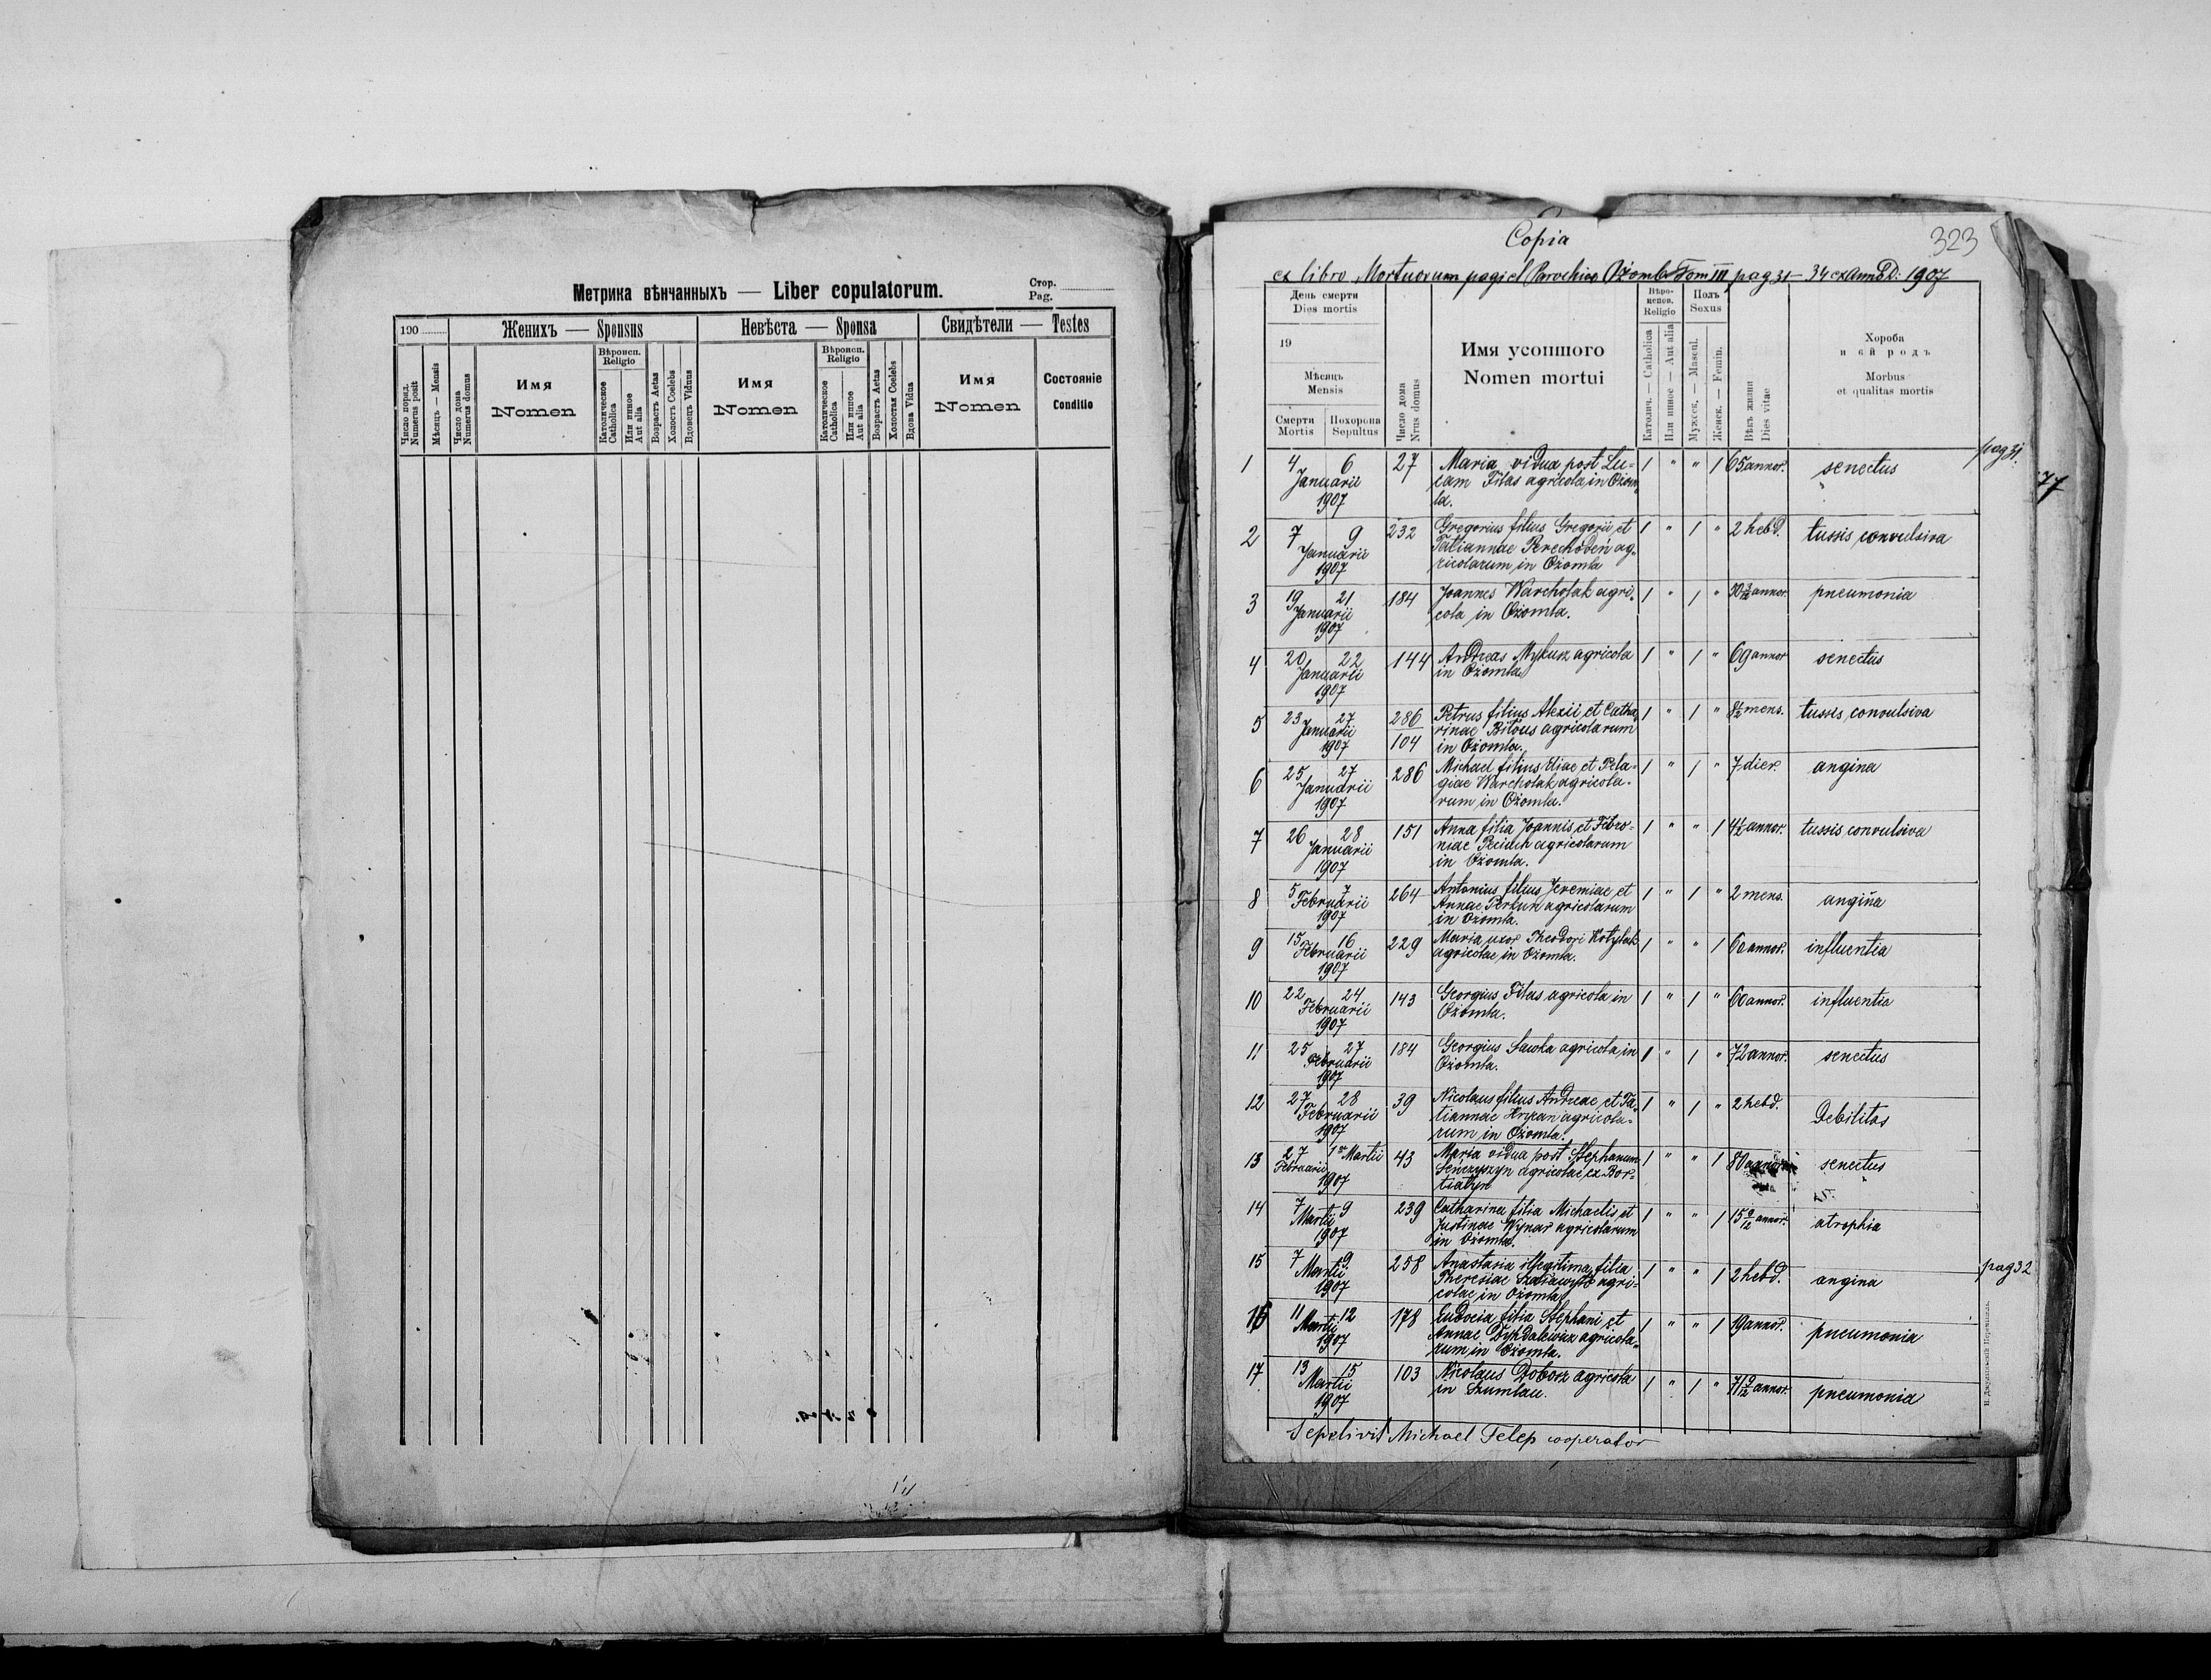 Метрика вѣнчанныхъ — Liber copulatorum.
Стор.
Pag.
190
Женихъ — Sponsus
Невѣста — Sponsa
Свидѣтели — Testes
Число поряд.
Numerus posit
Мѣсяцъ — Mensis
Число дома
Numerus domus
Имя
Nomen
Вѣроисп.
Religio
Католическое
Catholica
Или инное
Aut alia
Возрастъ Aetas
Холостъ Coelebs
Вдовецъ Viduus
Имя
Nomen
Вѣроисп.
Religio
Католическое
Catholica
Или инное
Aut alia
Возрастъ Aetas
Холостая Coelebs
Вдова Vidua
Имя
Nomen
Состояніе
Conditio
Copia
323
ex libro Mortuorum pagi et Parochiae Ożomla Tom III pag 31 – 34 ex Anno D: 1907
День смерти
Dies mortis
19
Мѣсяць
Mensis
Смерти
Mortis
Похорона
Sepultus
Число дома
Nrus domus
Имя усопшого
Nomen mortui
Вѣро-
испов.
Religio
Католич. — Catholica
Или инное — Aut alia
Полъ
Sexus
Мужеск. — Mascul.
Женск. — Femin.
Вѣкъ жизни
Dies vitae
Хороба
и єй родъ
Morbus
et qualitas mortis
pag 31.
77
1 4 6 27 Maria vidua post Lu- 1 " " 1 65 annor. senectus
Januarii cam Filas agricola in Ożom
1907 la.
2 7 9 232 Gregorius filius Gregorii et 1 " 1 " 2 hebd. tussis convulsiva
Januarii Tatiannae Perechodeń ag-
1907 ricolarum in Ożomla
3 19 21 184 Joannes Warcholak agri- 1 " 1 " annor. pneumonia
Januarii cola in Ożomla.
1907
4 20 22 144 Andreas Mykusz agricola 1 " 1 " 69 annor senectus
Januarii in Ożomla
1907
5 23 27 286 Petrus filius Alexii et Catha- 1 " 1 " mens. tussis convulsiva
Januarii 104 rinae Bilous agricolarum
1907 in Ożomla.
6 25 27 286 Michael filius Eliae et Pela- 1 " 1 " 7 dier. angina
Januarii giae Warcholak agricola-
1907 rum in Ożomla.
7 26 28 151 Anna filia Joannis et Febro- 1 " " 1 4½ annor. tussis convulsiva
Januarii niae agricolarum
1907 in Ożomla.
8 5 7 264 Antonius filius Jeremiae et 1 " 1 " 2 mens. angina
Februarii Annae Perkun agricolarum
1907 in Ożomla.
9 15 16 229 Maria uxor Theodori Kotylak 1 " " 1 60 annor. influentia
Februarii agricolae in Ożomla.
1907
10 22 24 143 Georgius Filas agricola in 1 " 1 " 60 annor. influentia
Februarii Ożomla.
1907
11 25 27 184 Georgius Sawka agricola in 1 " 1 " 72 annor. senectus
Februarii Ożomla.
1907
12 27 28 39 Nicolaus filius Andreae et Ta- 1 " 1 " 2 hebd. Debilitas
Februarii tiannae agricola-
1907 rum in Ożomla.
13 27 1 Martii 43 Maria vidua post Stephanum 1 " " 1 80 senectus
Februarii Senczyszyn agricolae ex Bor-
1907 tiatyn
14 7 9 239 Catharina filia Michaelis et 1 " " 1 15 9/12 annor. atrophia
Martii Justinae Wynar agricolarum
1907 in Ożomla.
15 7 9 258 Anastasia illegitima filia 1 " " 1 2 hebd. angina pag 32
Martii Theresiae agri-
1907 colae in Ożomla
16 11 12 178 Eudocia filia Stephani et 1 " " 1 19 annor. pneumonia
Martii Annae Dyhdalewicz agricola-
1907 rum in Ożomla.
17 13 15 103 Nicolaus Dobosz agricola 1 " 1 " 71 9/12 annor. pneumonia
Martii in Szumlau.
1907
Sepelivit Michael Telep cooperator